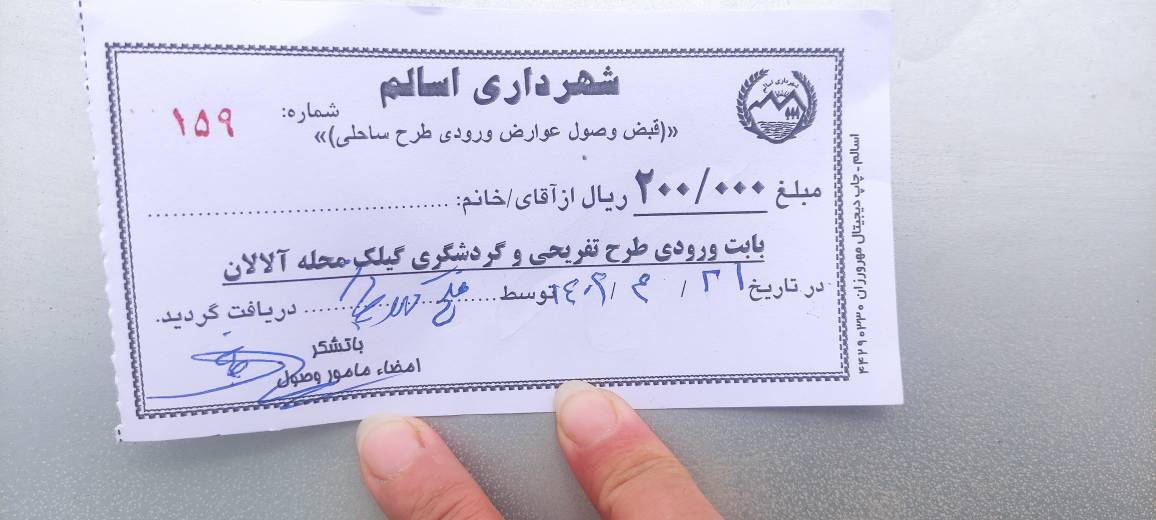 شهرداری اسالم
شماره: ۱۵۹
«(قبض وصول عوارض ورودی طرح ساحلی)»
مبلغ ۲۰۰/۰۰۰ ریال از آقای/خانم: ........................................
بابت ورودی طرح تفریحی و گردشگری گیلک محله آلالان
در تاریخ توسط .................... دریافت گردید.
باتشکر
امضاء مامور وصول
شهرداری اسالم
اسالم - چاپ دیجیتال مهرورزان